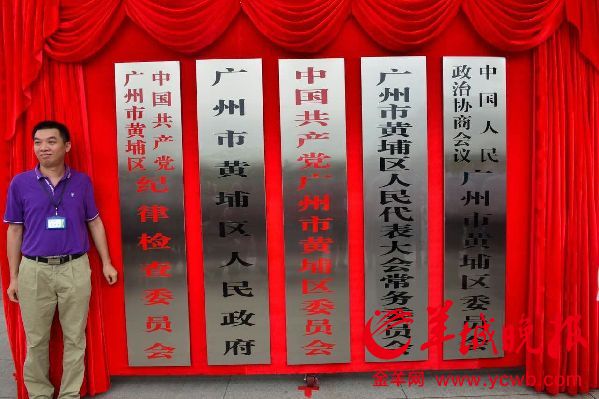 中国共产党
广州市黄埔区
纪律检查委员会
广州市黄埔区人民政府
中国共产党广州市黄埔区委员会
广州市黄埔区人民代表大会常务委员会
中国人民
政治协商会议
广州市黄埔区委员会
羊城晚报
金羊网 www.ycwb.com